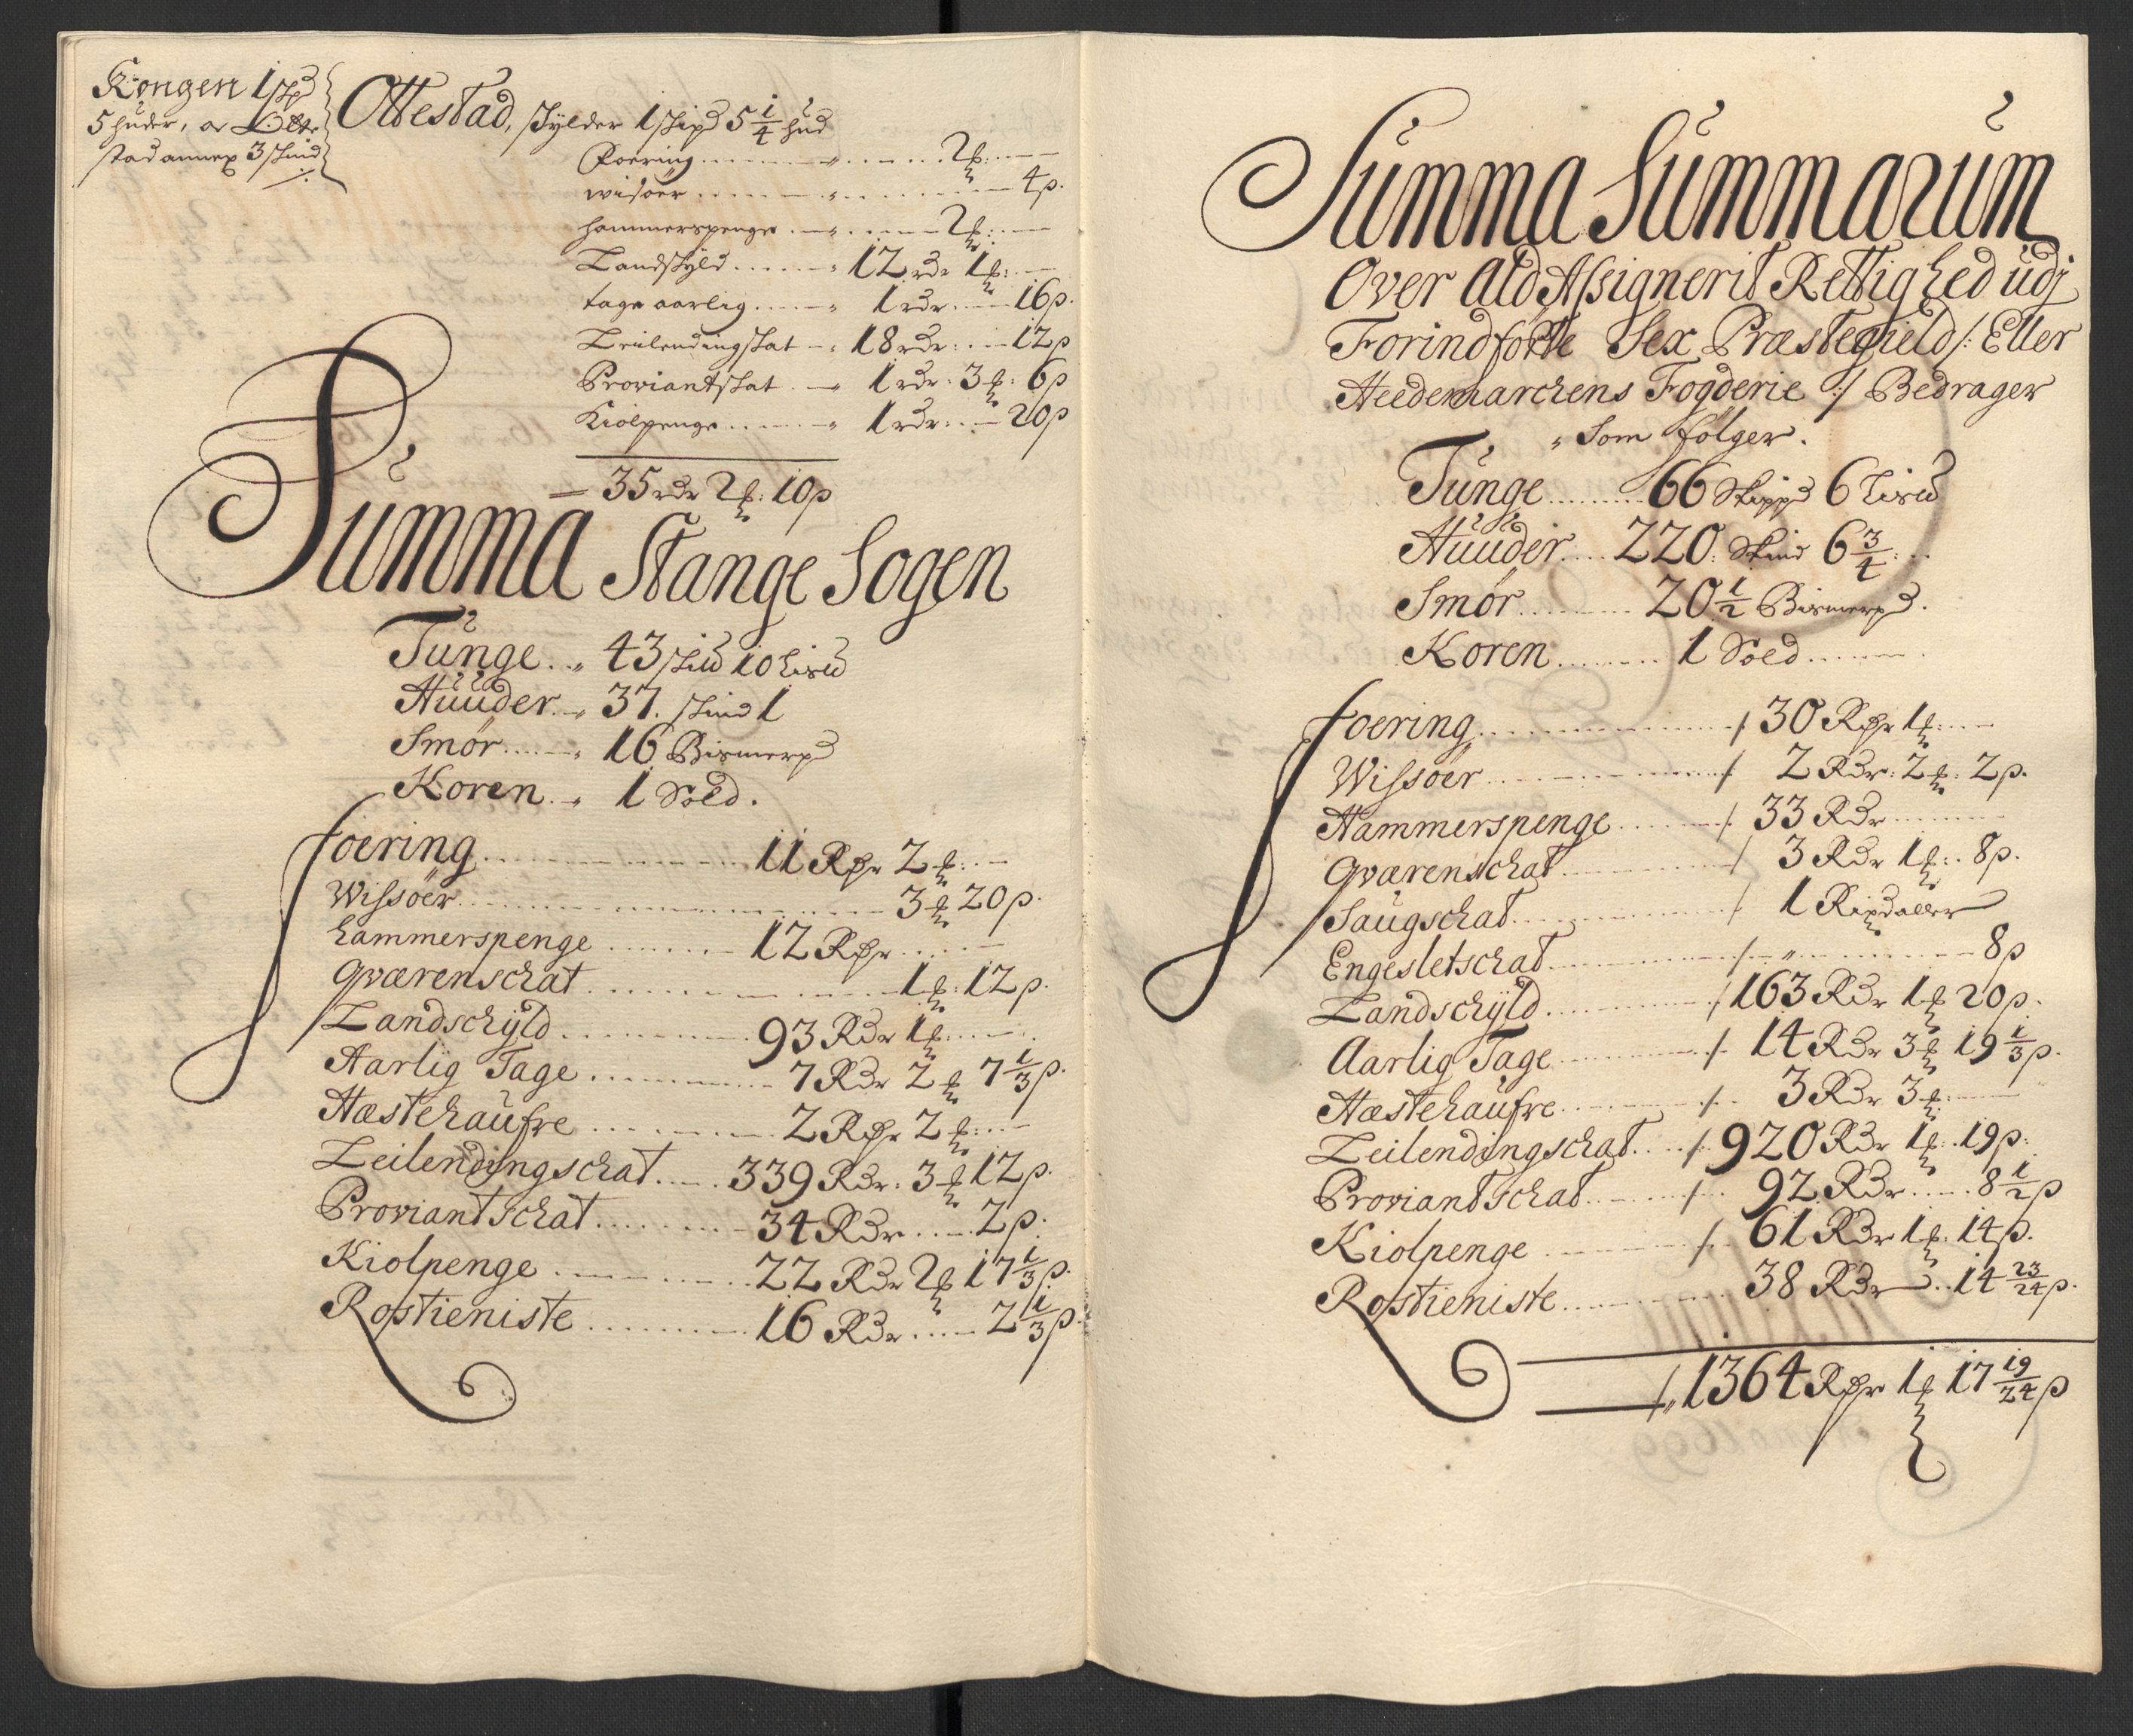 Kongen 1 skpd
5 huder, a Otte
stad annex 3 skind
Ottestad, skylder 1 skipd 5 1/4 hud
Foering 2 ß
wisöer 4 p.
hammerspenge 2 ß
Landskyld 12 rdr 1 ß
tage aarlig 1 rdr 16 p.
Leilendingskat 18 rdr 12 p
Proviantskat 1 rdr 3 ß 6 p
Kiolpenge 1 rdr 20 p
35 rdr 2 ß 10 p
Summa Stange Sogen
Tunge 43 skud 10 Lisud
Huuder 37. skind 1
Smör 16 Bismerpd
Koren 1 Sold.
foering 11 Rdr 2 ß
Wissöer 3 ß 20 p.
hammerspenge 12 Rdr
Qværenschat 1 ß 12 p.
Landschyld 93 Rdr 1 ß
Aarlig Tage 7 Rdr 2 ß 7 1/3 p.
Hæstehaufre 2 Rdr 2 ß
Leilendingschat 339 Rdr. 3 ß 12 p.
Proviantschat 34 Rdr 2 p.
Kiolpenge 22 Rdr 2 ß 17 1/3 p.
Rostieniste 16 Rdr 2 1/3 p.
Summa Summarum
Over Ald Assignerit Rettighed udj
Forindförte Sex Præstegield /: Eller
Heedemarchens Fogderie :/ Bedrager
Som fölger.
Tunge 66 Skippd 6 Lisud
Huuder 220. Skind 6 3/4
Smör 20 1/2 Bismerpd.
Koren 1 Sold
foering 30 Rdr 1 ß
Wissöer 2 Rdr. 2 ß 2 p.
Hammerspenge 33 Rdr
Qværenschat 3 Rdr 1 ß 8 p.
Saugschat 1 Rixdaller
Engesletschat 8 p
Landschyld 163 Rdr 1 ß 20 p.
Aarlig Tage 14 Rdr 3 ß 19 1/3 p.
Hæstehaufre 3 Rdr 3 ß
Leilendingschat 920 Rdr 1 ß 19 p.
Proviantschat 92 Rdr 8 1/2 p
Kiolpenge 61 Rdr 1 ß 14 p.
Rostieniste 38 Rdr 14 23/24 p.
1364 Rdr 1 ß 17 19/24 p